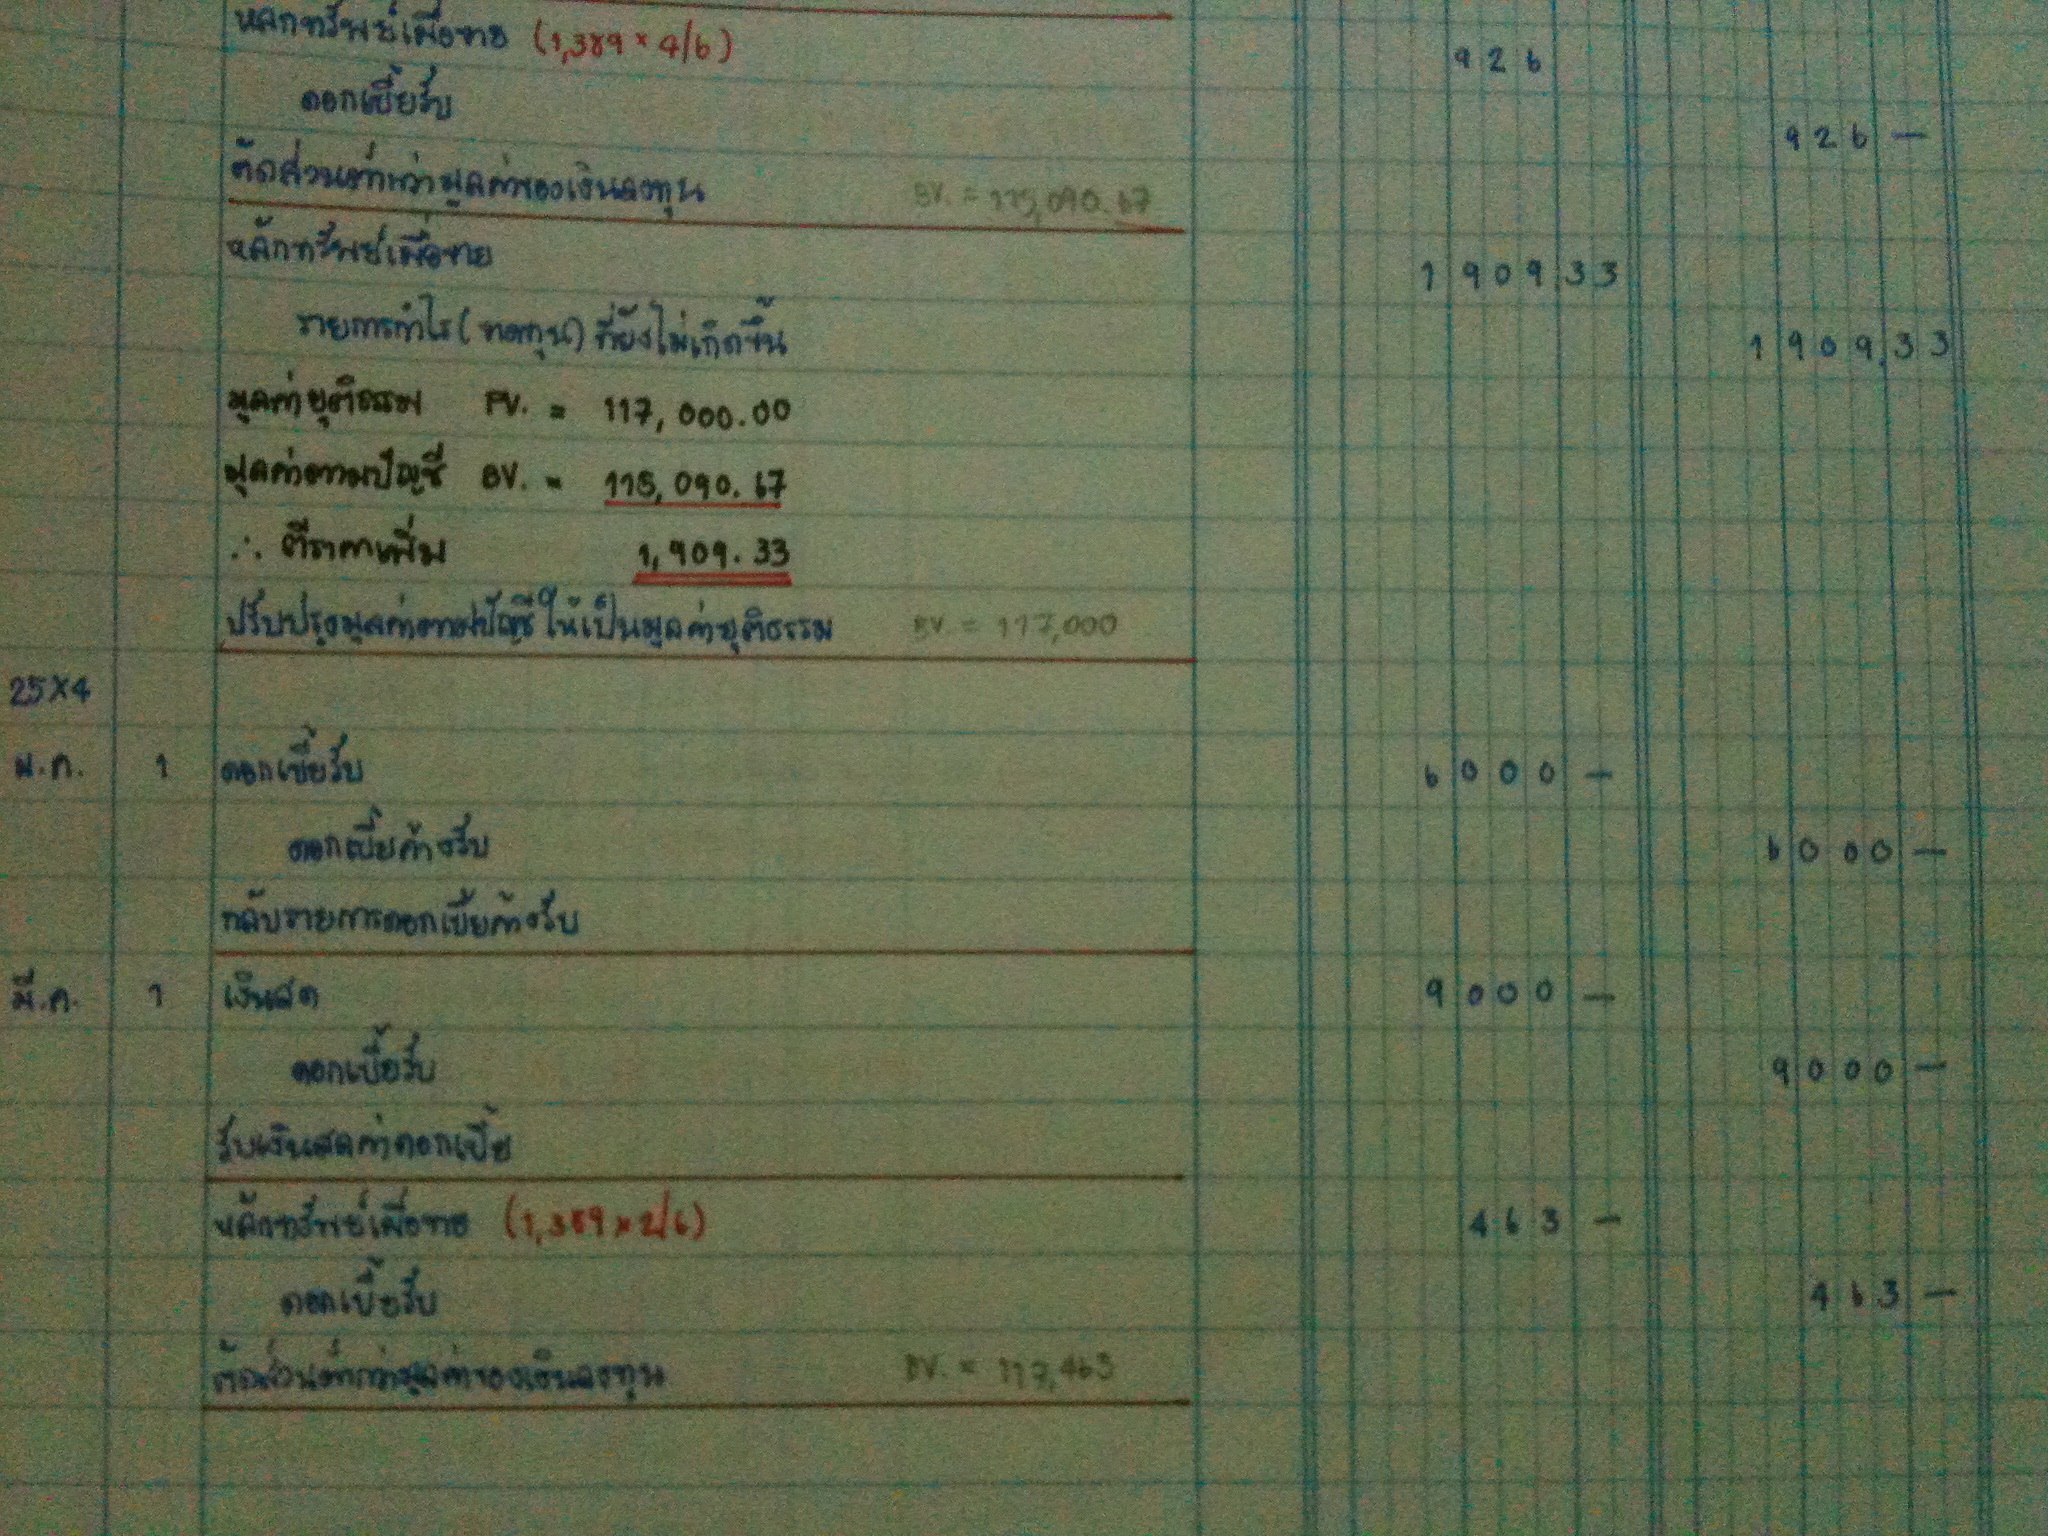 หลักทรัพย์เผื่อขาย (1,389 × 4/6) 926
ดอกเบี้ยรับ 926 —
ตัดส่วนต่ำกว่ามูลค่าของเงินลงทุน BV. = 115,090.67
หลักทรัพย์เผื่อขาย 1 909 33
รายการกำไร (ขาดทุน) ที่ยังไม่เกิดขึ้น 1 909 33
มูลค่ายุติธรรม FV. = 117,000.00
มูลค่าตามบัญชี BV. = 115,090.67
∴ ตีราคาเพิ่ม 1,909.33
ปรับปรุงมูลค่าตามบัญชีให้เป็นมูลค่ายุติธรรม BV. = 117,000
25X4
ม.ค. 1 ดอกเบี้ยรับ 6000 —
ดอกเบี้ยค้างรับ 6000 —
กลับรายการดอกเบี้ยค้างรับ
มี.ค. 1 เงินสด 9000 —
ดอกเบี้ยรับ 9000 —
รับเงินสดค่าดอกเบี้ย
หลักทรัพย์เผื่อขาย (1,389 × 2/6) 463 —
ดอกเบี้ยรับ 463 —
ตัดส่วนต่ำกว่ามูลค่าของเงินลงทุน BV. = 117,463